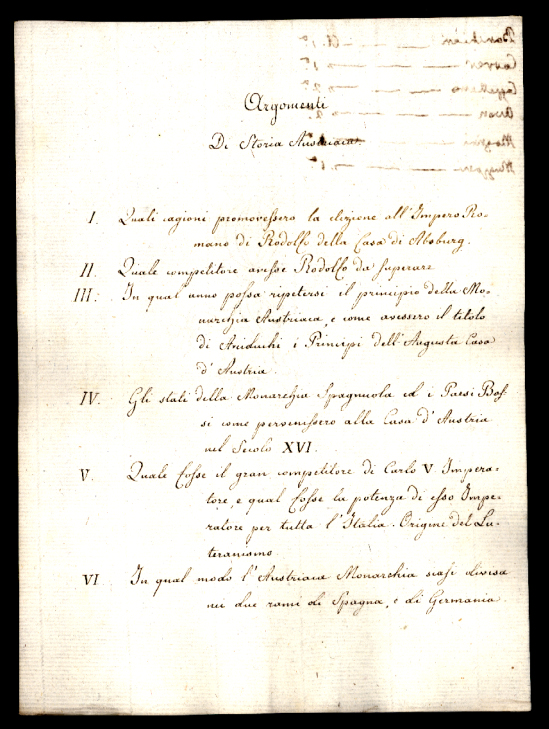 Argomenti
Di Storia Austriaca
I. Quali cagioni promovessero la elezione all'Impero Ro-
mano di Rodolfo della Casa di Absburg.
II. Quale competitore avesse Rodolfo da superare
III. In qual anno possa ripetersi il principio della Mo-
narchia Austriaca, e come avessero il titolo
di Arciduchi i Principi dell'Augusta Casa
d'Austria.
IV. Gli stati della Monarchia Spagnuola ed i Paesi Bas-
si come pervenissero alla Casa d'Austria
nel Secolo XVI.
V. Quale fosse il gran competitore di Carlo V. Impera-
tore, e qual fosse la potenza di esso Impe-
ratore per tutta l'Italia. Origine del Lu-
teranismo.
VI In qual modo l'Austriaca Monarchia siasi divisa
nei due rami di Spagna, e di Germania.